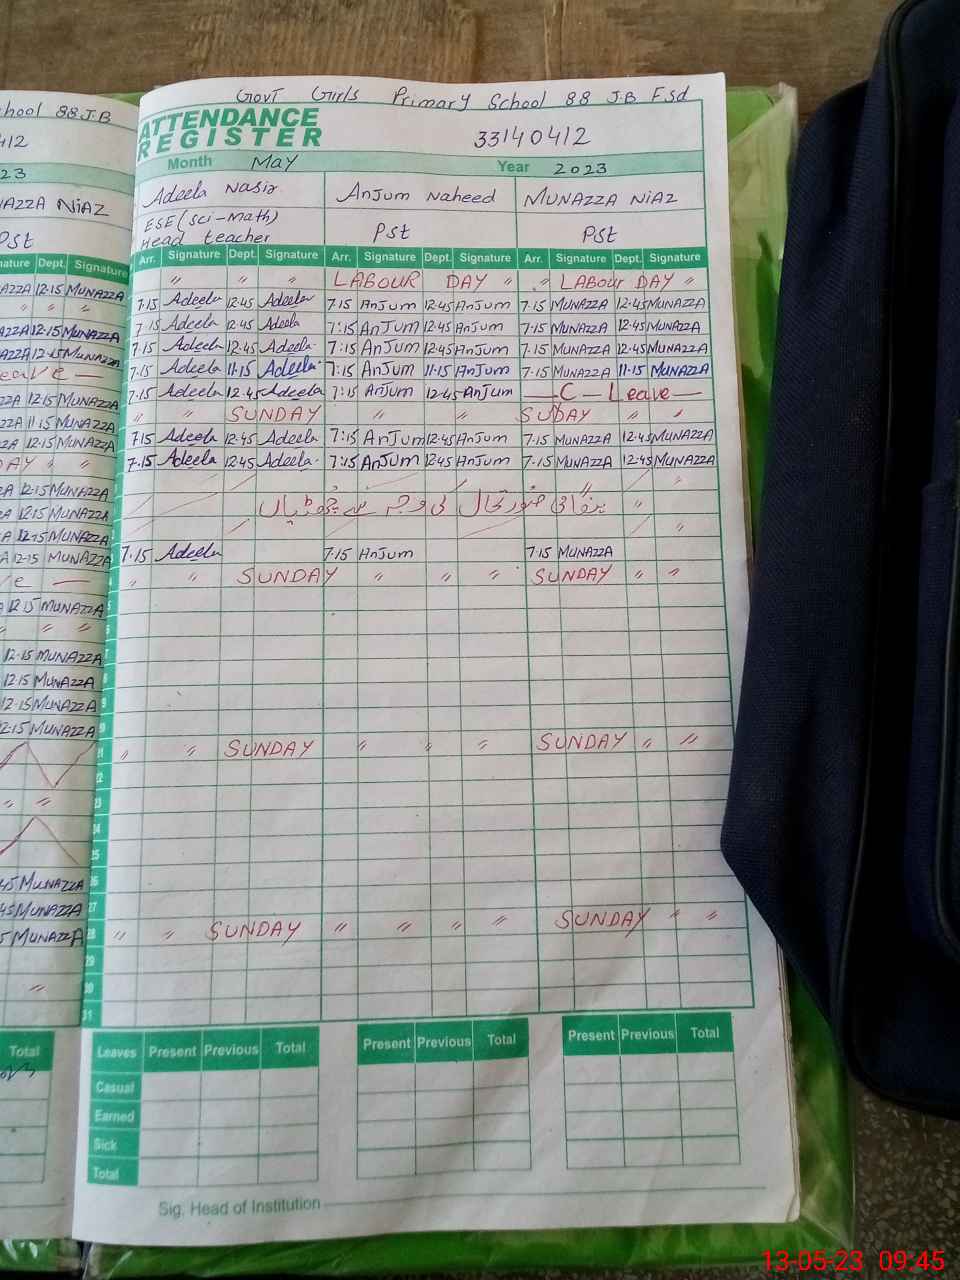 chool 88 J.B
412
23
AZZA NiAZ
Pst
ature Dept. Signature
AZZA 12·15 MUNAZZA
AZZA 12·15 MUNAZZA
AZZA 12·15 MUNAZZA
eave —
ZZA 12·15 MUNAZZA
ZZA 11·15 MUNAZZA
ZA 12·15 MUNAZZA
DAY " "
A 12·15 MUNAZZA
A 12·15 MUNAZZA
A 12·15 MUNAZZA
A 12·15 MUNAZZA
ve —
A 12·15 MUNAZZA
" " "
12·15 MUNAZZA
12·15 MUNAZZA
12·15 MUNAZZA
12·15 MUNAZZA
" "
45 MUNAZZA
45 MUNAZZA
5 MUNAZZA
"
Total
Govt Girls Primary School 88 J.B Fsd
ATTENDANCE
REGISTER 33140412
Month May Year 2023
Adeela Nasir Anjum Naheed MUNAZZA NiAZ
ESE (Sci-Math)
Head teacher Pst Pst
Arr. Signature Dept. Signature Arr. Signature Dept. Signature Arr. Signature Dept. Signature
" " " LABOUR DAY " " LABOUR DAY "
7·15 Adeela 12·45 Adeela 7:15 AnJum 12·45 AnJum 7·15 MUNAZZA 12·45 MUNAZZA
7·15 Adeela 12·45 Adeela 7:15 AnJum 12·45 AnJum 7·15 MUNAZZA 12·45 MUNAZZA
7·15 Adeela 12·45 Adeela 7:15 AnJum 12·45 AnJum 7·15 MUNAZZA 12·45 MUNAZZA
7·15 Adeela 11·15 Adeela 7:15 AnJum 11·15 AnJum 7·15 MUNAZZA 11·15 MUNAZZA
7·15 Adeela 12·45 Adeela 7:15 AnJum 12·45 AnJum — C — Leave —
" " SUNDAY " " SUDAY " "
7·15 Adeela 12·45 Adeela 7:15 AnJum 12·45 AnJum 7·15 MUNAZZA 12·45 MUNAZZA
7·15 Adeela 12·45 Adeela 7:15 AnJum 12·45 AnJum 7·15 MUNAZZA 12·45 MUNAZZA
" "
صورتحال کی وجہ سے چھٹیاں "
"
7·15 Adeela 7·15 AnJum 7·15 MUNAZZA
4 " " SUNDAY " " " SUNDAY " "
5
6
7
8
9
0
21 " " SUNDAY " " " SUNDAY " "
22
23
24
25
26
27
28 " " SUNDAY " " " " SUNDAY " "
29
30
31
Leaves Present Previous Total Present Previous Total Present Previous Total
Casual
Earned
Sick
Total
Sig. Head of Institution
13-05-23 09:45